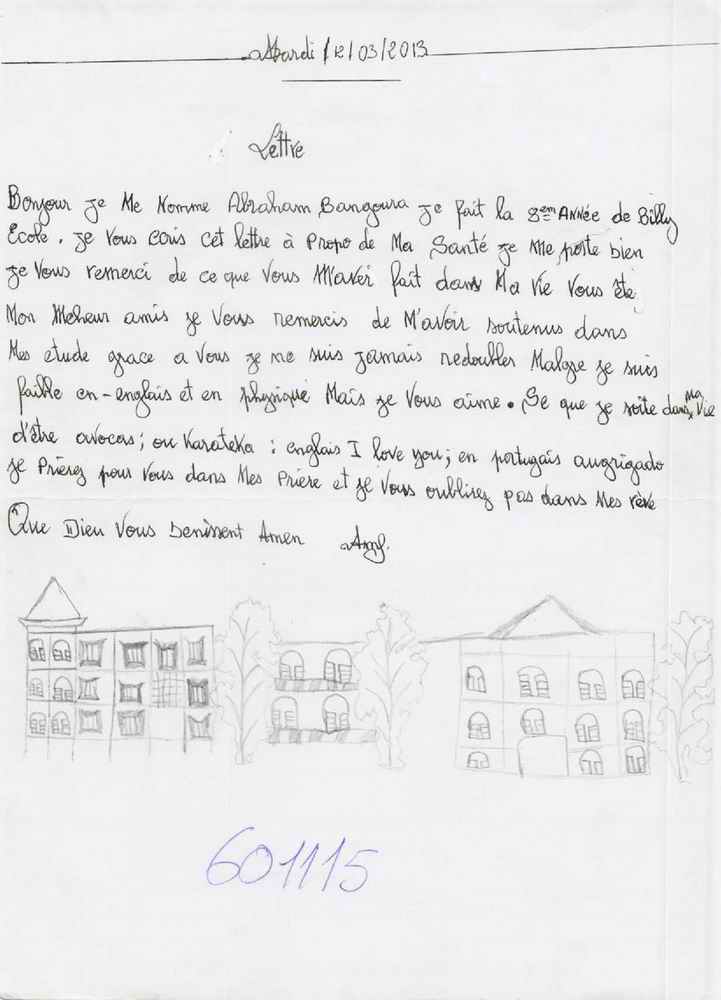 Mardi 12/03/2013
Lettre
Bonjour je Me Nomme Abraham Bangoura je fait la 8em ANNée de Billy
Ecole. je Vous ecris cet lettre à Propo de Ma Santé je Me porte bien
je Vous remerci de ce que Vous M'aver fait dans Ma Vie Vous ête
Mon Meheur amis je Vous remercis de M'avoir soutenus dans
Mes etude grace a Vous je ne suis jamais redoubler Malgre je suis
faible en-englais et en physique Mais je Vous aime. Se que je soite dans Ma Vie
d'être avocas; ou Karateka: englais I love you; en portugais augrigado
je Prierez pour Vous dans Mes Priere et je Vous oublirez pas dans Mes rêve
Que Dieu Vous benissent Amen
601115